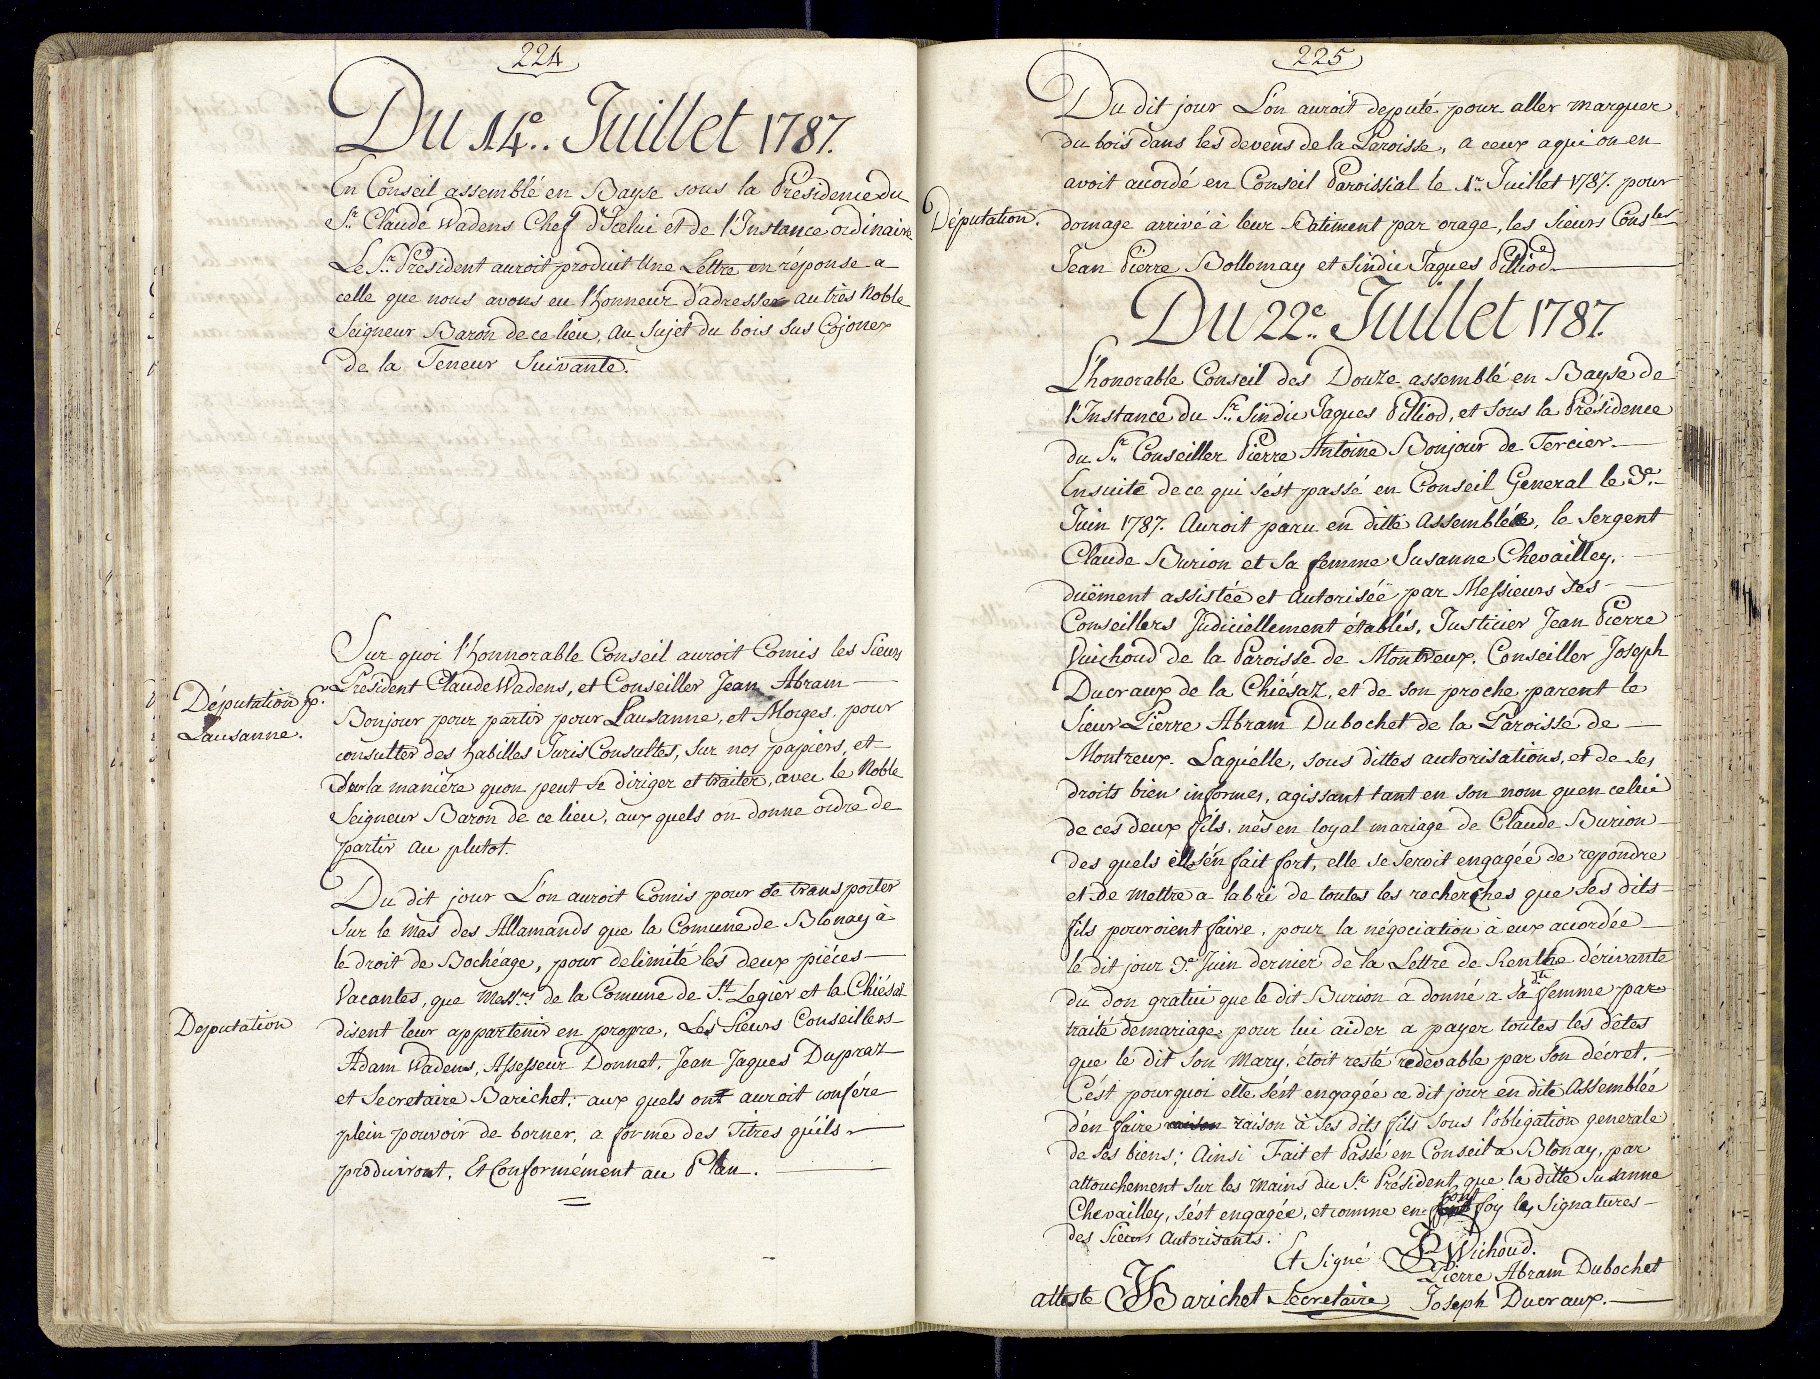 224
Du 14e. Juillet 1787.
En Conseil assemblé en Bayse sous la Présidence du
Sr. Claude Wadens Chef d'Icelui et de l'Instance ordinaire
Le Sr. Président auroit produit Une Lettre en réponse a
celle que nous avons eu l'honneur d'adresser au très Noble
Seigneur Baron de ce lieu, au Sujet du bois sus Cojonex
de la Teneur Suivante.
Sur quoi l'honnorable Conseil auroit Comis les Sieurs
Président Claude Wadens, et Conseiller Jean Abram
Députation pr.
Lausanne.
Bonjour pour partir pour Lausanne, et Morges, pour
consulter des habilles JurisConsultes, sur nos papiers, et
sur la maniére quon peut se diriger et traiter, avec le Noble
Seigneur Baron de ce lieu, aux quels on donne ordre de
partir au plutot.
Du dit jour L'on auroit Comis pour se transporter
Sur le mas des Allamands que la Comune de Blonay à
le droit de Bochéage, pour delimité les deux piéces
Vacantes, que Messrs. de la Comune de St. Legier et la Chiésaz
Deputation
disent leur appartenir en propre, Les Sieurs Conseillers
Adam Wadens, Assesseur Donnet, Jean Jaques Dupraz
et Secretaire Barichet; aux quels ont auroit confére
plein pouvoir de borner, a forme des Titres qu'ils
produiront, Et Conformément au Plan.
225
Du dit jour L'on auroit deputé pour aller marquer
du bois dans les devens de la Paroisse, a ceux a qui on en
avoit acordé en Conseil Paroissial le 1r. Juillet 1787. pour
Députation.
domage arrivé à leur Batiment par orage, les Sieurs Consler
Jean Pierre Bollomay et Sindic Jaques Pilliod.
Du 22e. Juillet 1787.
L'honorable Conseil des Douze assemblé en Bayse de
l'Instance du Sr. Sindic Jaques Pilliod, et sous la Présidence
du Sr. Conseiller Pierre Antoine Bonjour de Tercier.
Ensuite de ce qui s'est passé en Conseil General le 3e.
Juin 1787. Auroit paru en ditte Assemblée, le Sergent
Claude Burion et sa femme Susanne Chevailley,
duëment assistée et Autorisée par Messieurs ses
Conseillers Judiciellement établis, Justicier Jean Pierre
Vuichoud de la Paroisse de Montreux, Conseiller Joseph
Ducraux de la Chiésaz, et de son proche parent le
Sieur Pierre Abram Dubochet de la Paroisse de
Montreux. Laquelle, sous dittes autorisations, et de ses
droits bien informer, agissant tant en son nom quen celui
de ces deux fils, nés en loyal mariage de Claude Burion
des quels elle s'en fait fort, elle se seroit engagée de repondre
et de mettre a labri de toutes les recherches que ses dits
fils pouroient faire, pour la négociation à eux acordée
le dit jour 3e. Juin dernier de la Lettre de Renthe dérivante
du don gratui que le dit Burion a donné a sa dte femme par
traité demariage, pour lui aider a payer toutes les dêtes
que le dit Son Mary, étoit resté redevable par Son décret.
C'est pourquoi elle s'est engagée ce dit jour en dite Assemblée
d'en faire raison à ses dits fils sous l'obligation generale
de ses biens; Ainsi Fait et Passé en Conseil a Blonay, par
attouchement sur les mains du Sr. Président, que la ditte Susanne
Chevailley, s'est engagée, et comme en font foy les Signatures
des Sieurs Autorisants.
Et Signé
Wichoud.
Pierre Abram Dubochet
atteste Barichet Secretaire
Joseph Ducraux.